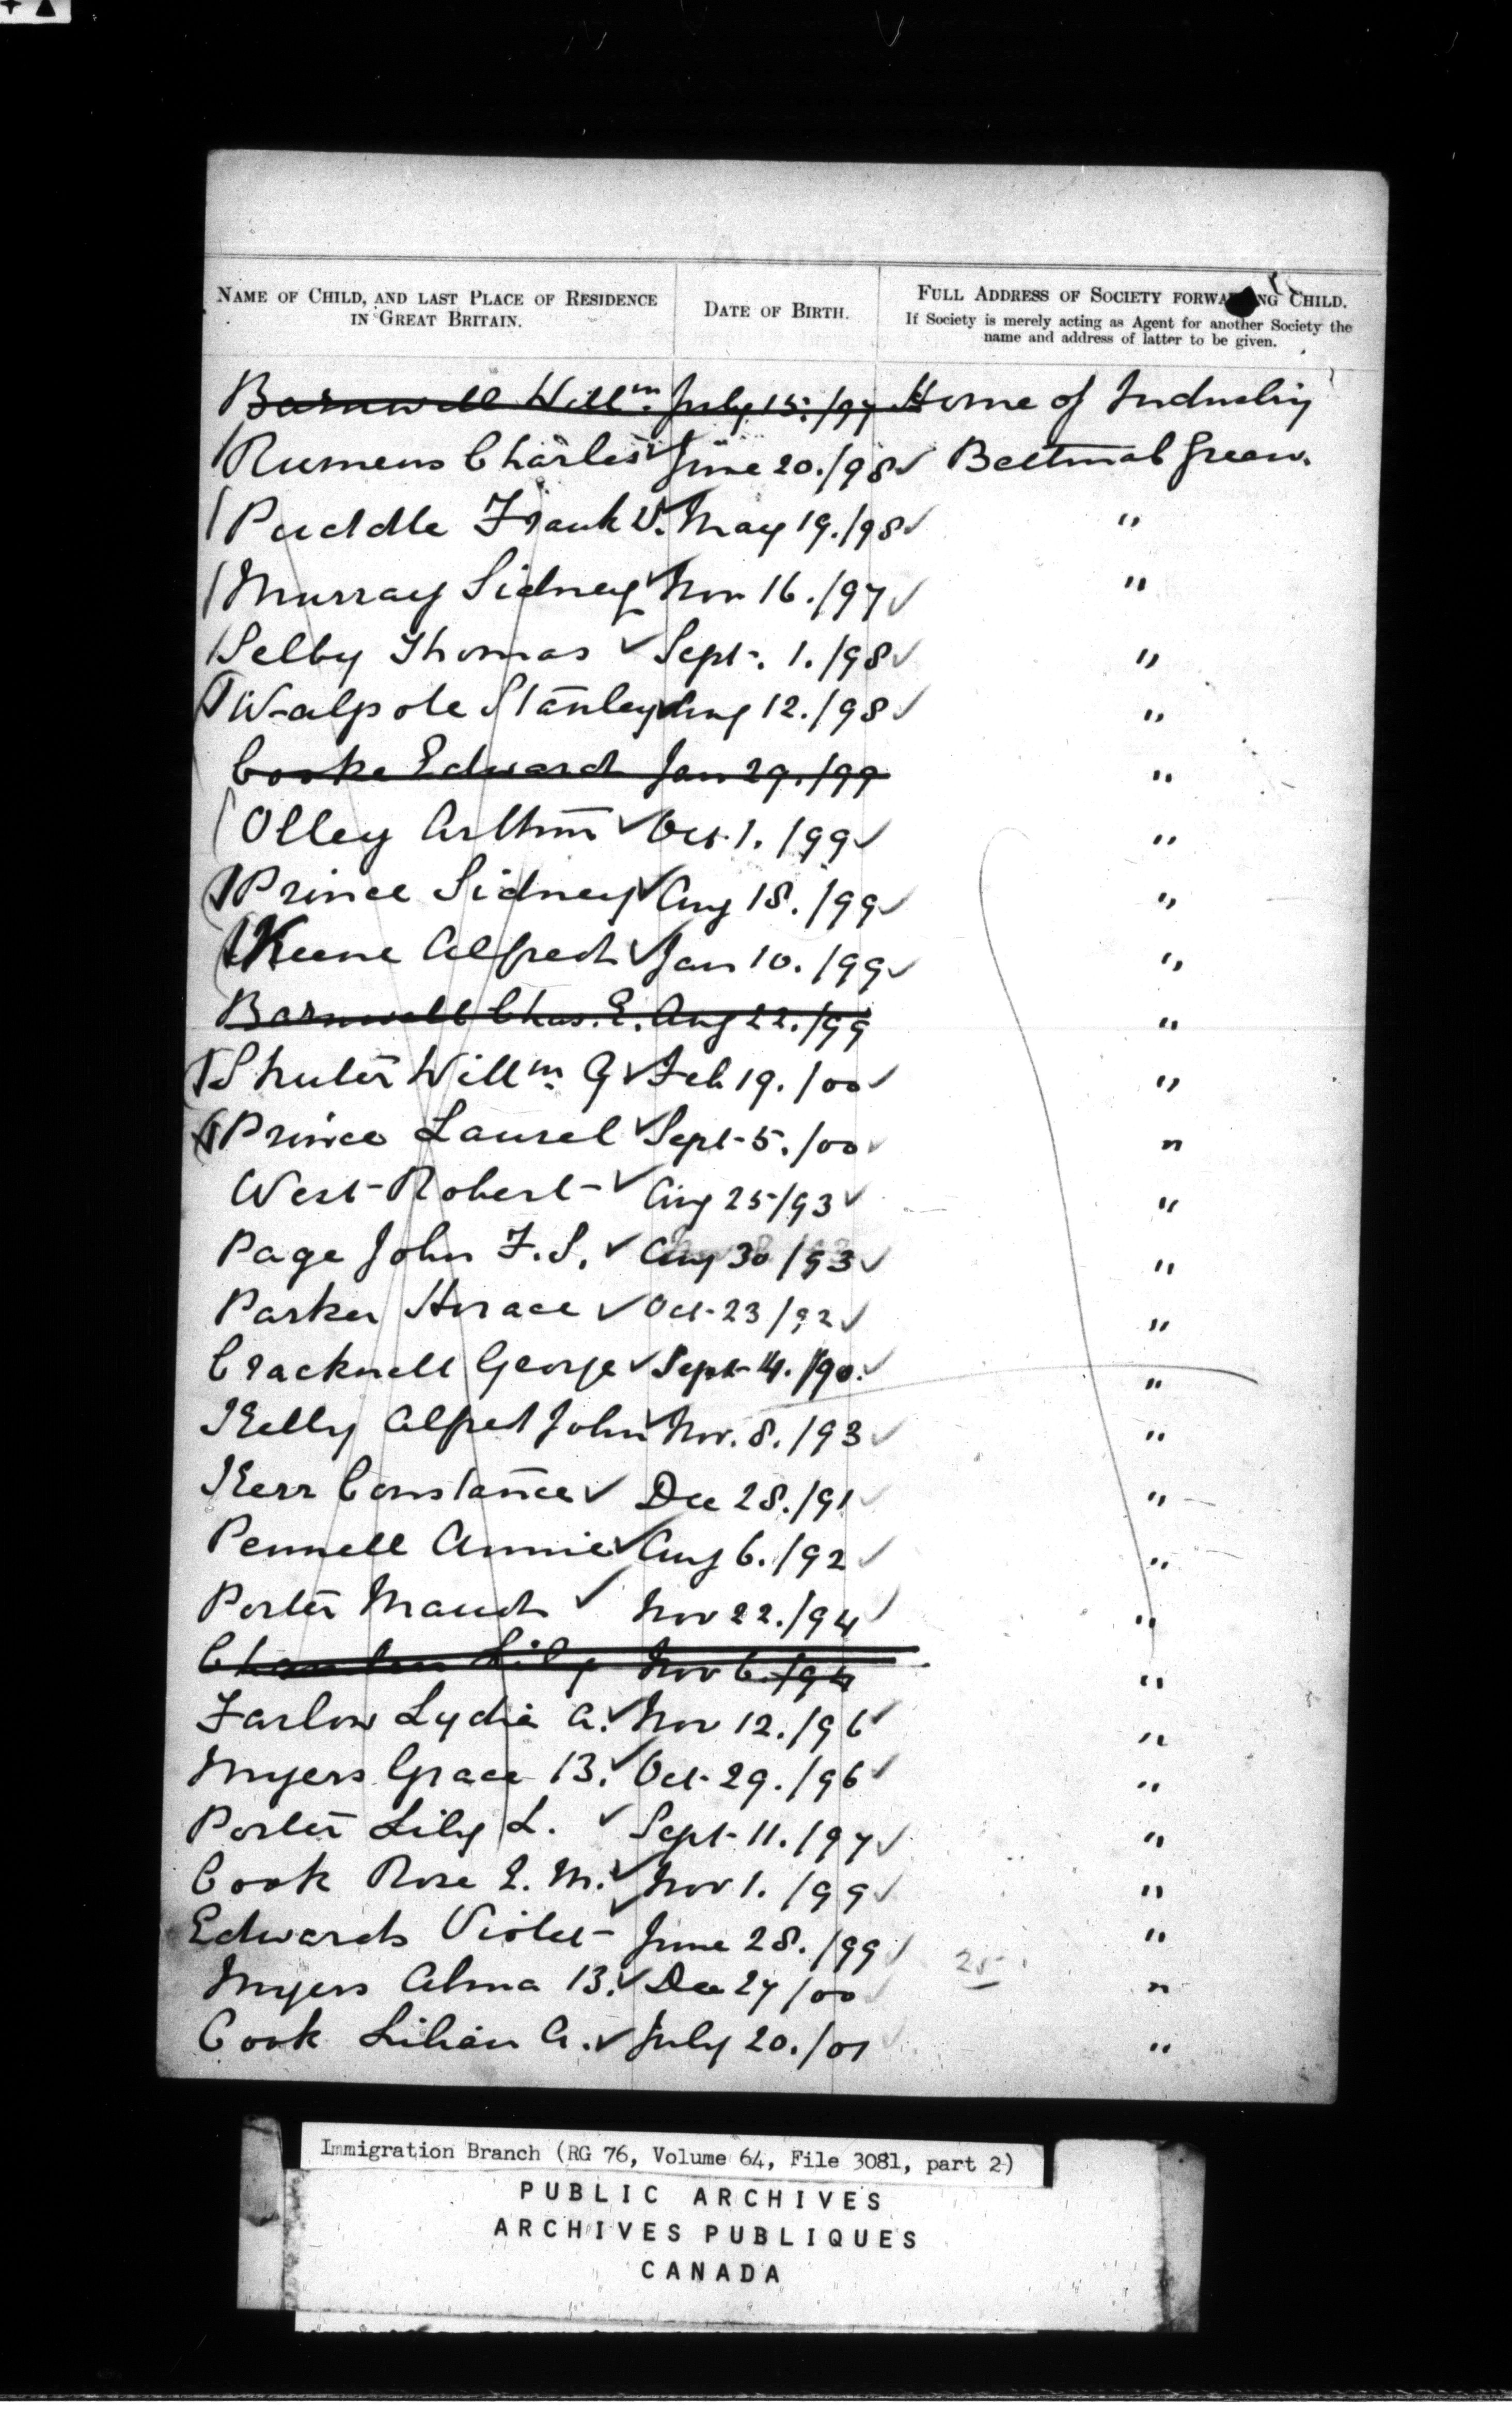 NAME OF CHILD, AND LAST PLACE OF RESIDENCE IN GREAT BRITAIN.
DATE OF BIRTH.
FULL ADDRESS OF SOCIETY FORWARDING CHILD.
If Society is merely acting as Agent for another Society the name and address of latter to be given.
Barnwell Willm. July 15./97 Home of Industry
Rumens Charles ✓ June 20./98 ✓ Bethnal Green.
Puddle Frank V. May 19./98 ✓ "
Murray Sidney ✓ Nov 16./97 ✓ "
Selby Thomas ✓ Sept. 1./98 ✓ "
Walpole Stanley ✓ Aug 12./98 ✓ "
Cooke Edward Jan 29./99 "
Olley Arthur ✓ Oct. 1./99 ✓ "
Prince Sidney ✓ Aug 18./99 ✓ "
Keene Alfred ✓ Jan 10./99 ✓ "
Barnwell Chas. E. Aug 22./99 "
Shuter Willm. G ✓ Feb 19./00 ✓ "
Prince Laurel ✓ Sept 5./00 ✓ "
West Robert ✓ Aug 25/93 ✓ "
Page John F.S. ✓ Aug 30/93 ✓ "
Parker Horace ✓ Oct 23/92 ✓ "
Cracknell George ✓ Sept 4./90. ✓ "
Kelly Alfred John ✓ Nov. 8./93 ✓ "
Kerr Constance ✓ Dec 28./91 ✓ "
Pennell Annie ✓ Aug 6./92 ✓ "
Porter Maud ✓ Nov 22./94 ✓ "
Lily Nov 6./94 "
Farlow Lydia A. ✓ Nov 12./96 ✓ "
Myers Grace B. ✓ Oct 29./96 ✓ "
Porter Lily L. ✓ Sept 11./97 ✓ "
Cook Rose E. M. ✓ Nov 1./99 ✓ "
Edwards Violet ✓ June 28./99 ✓ "
25
Myers Alma B. ✓ Dec 27/00 ✓ "
Cook Lilian A. ✓ July 20./01 ✓ "
Immigration Branch (RG 76, Volume 64, File 3081, part 2)
PUBLIC ARCHIVES
ARCHIVES PUBLIQUES
CANADA